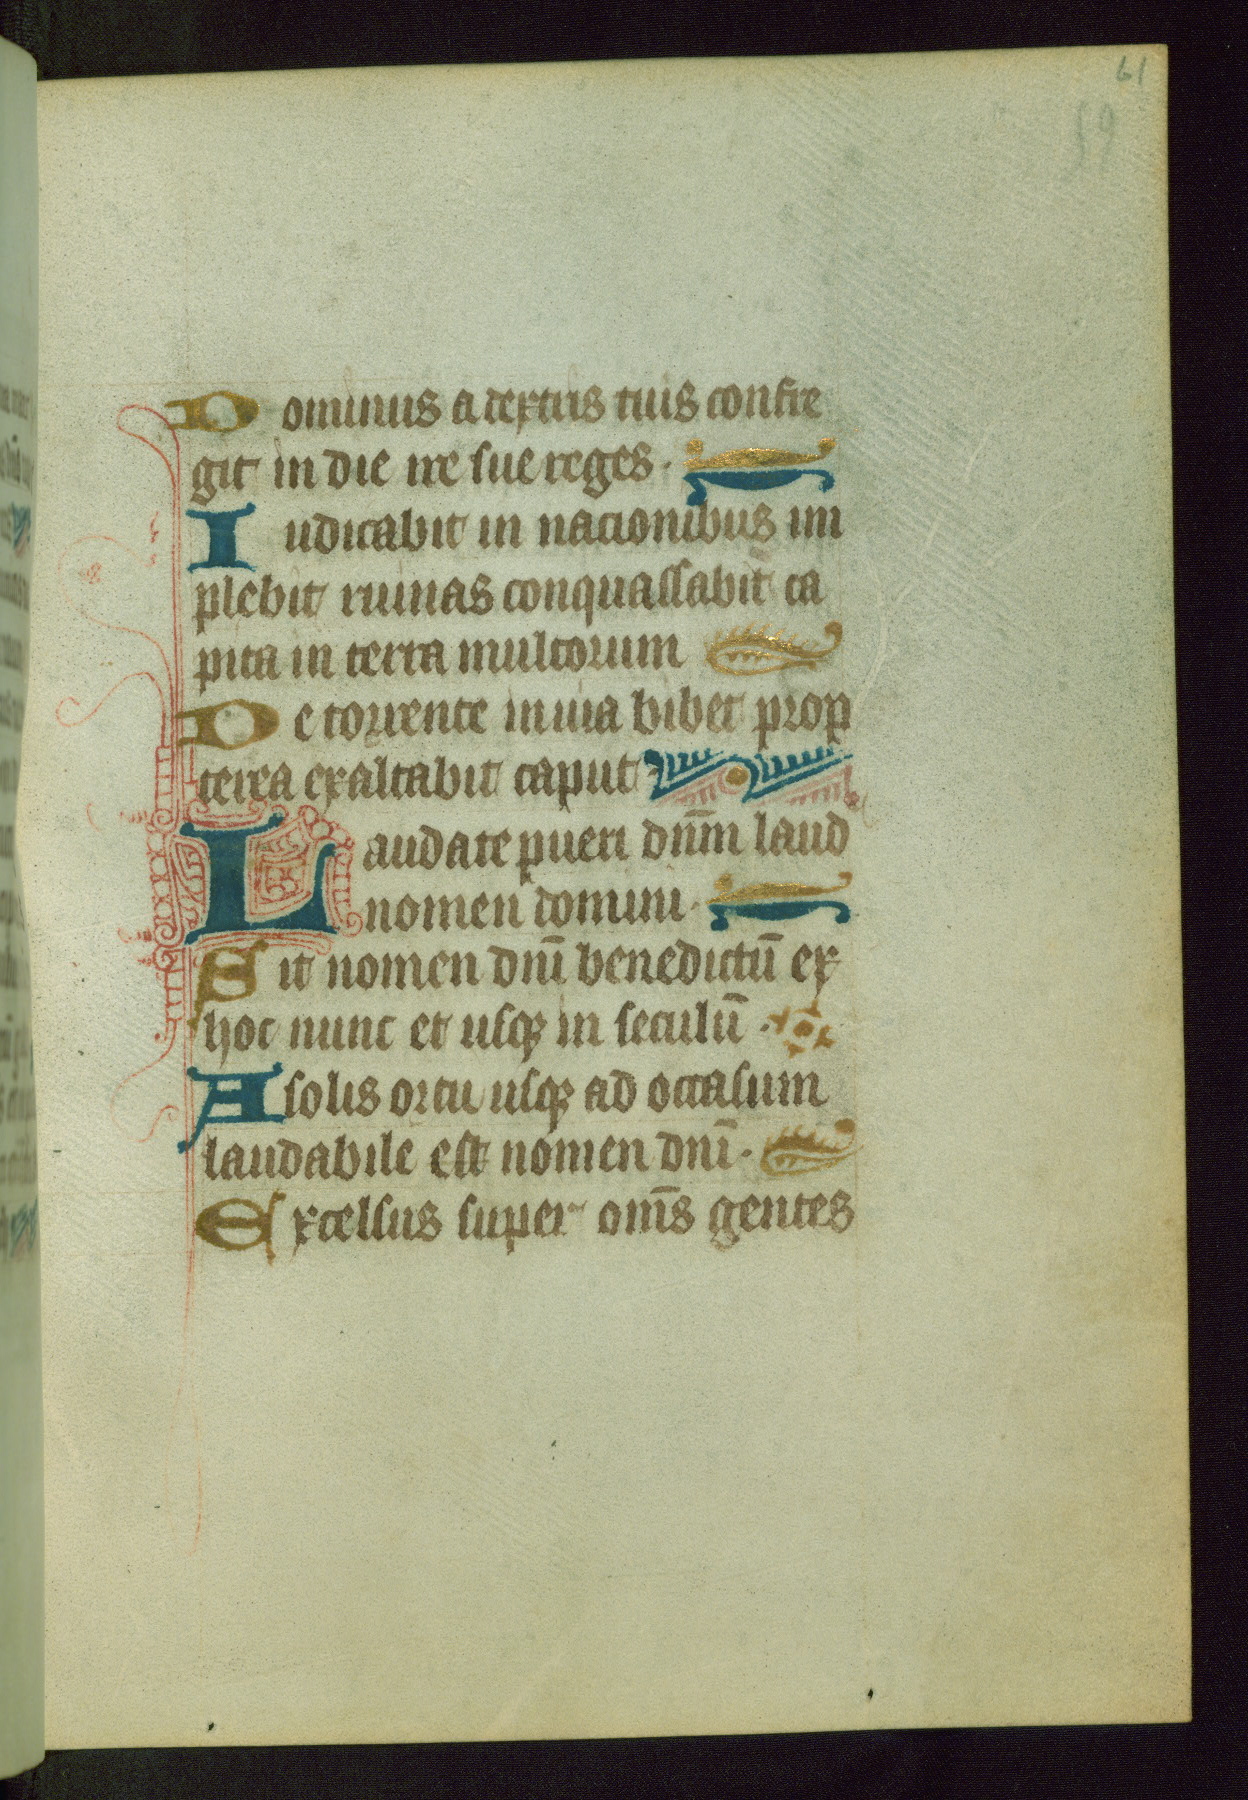 61
59
Dominus a dextris tuis confre
git in die ire sue reges.
Iudicabit in nacionibus im
plebit ruinas conquassabit ca
pita in terra multorum
De torrente in uia bibet prop
terea exaltabit caput
Laudate pueri dnm̄ laud
nomen domini.
Sit nomen dnī benedictū ex
hoc nunc et usqꝫ in seculū.
A solis ortu usqꝫ ad occasum
laudabile est nomen dnī.
Excelsus super omīs gentes